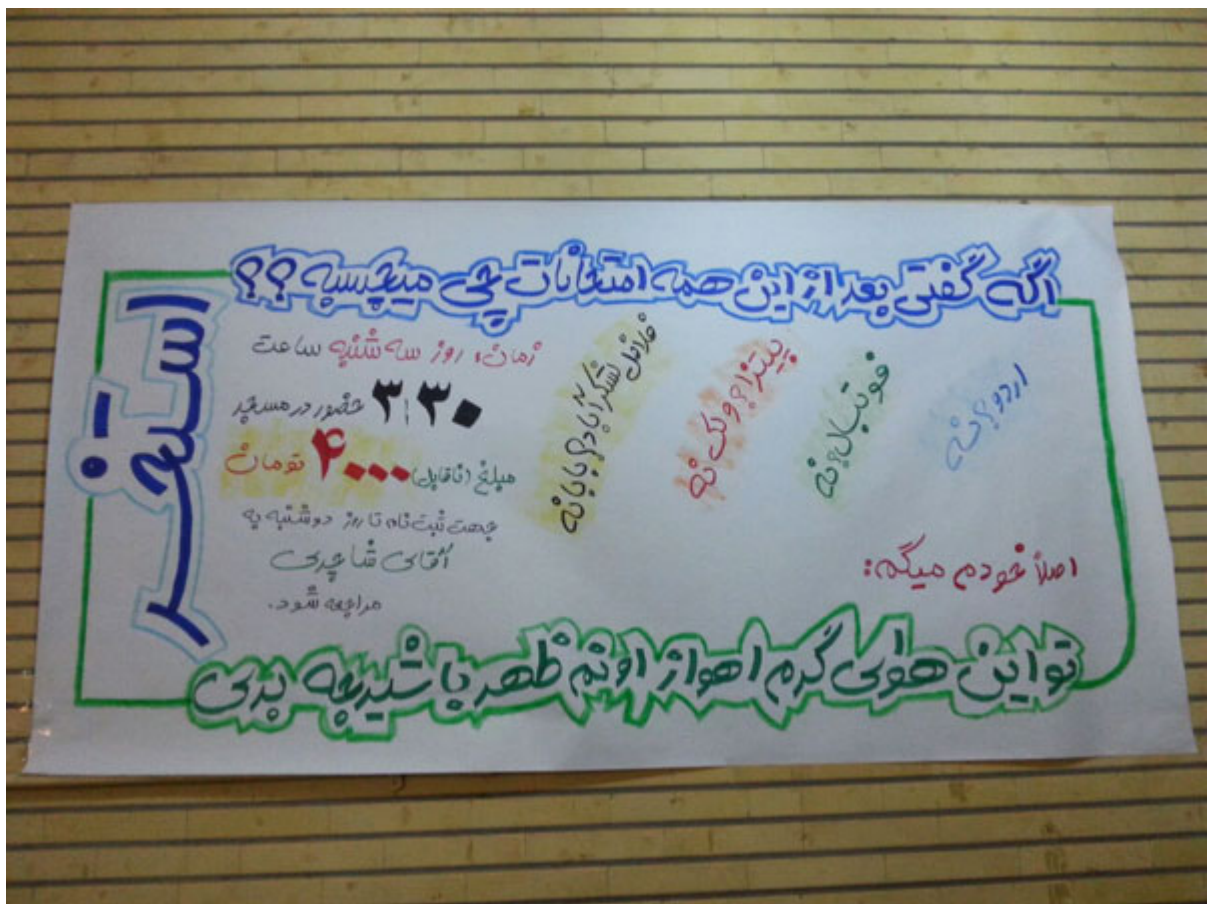 اگه گفتی بعد از این همه امتحانات چی میچسبه؟؟
اردو؟ نه
فوتبال؟ نه
پیتزا؟ ولک نه
فلافل لشکرآباد؟ بابا نه
اصلاً خودم میگم:
تو این هوای گرم اهواز اونم ظهر با شیرجه بری
استخر
زمان: روز سه شنبه ساعت
۳:۳۰ حضور در مسجد
مبلغ (ناقابل) ۴۰۰۰ تومان
جهت ثبت نام تا روز دوشنبه به
آقای شاچری
مراجعه شود.